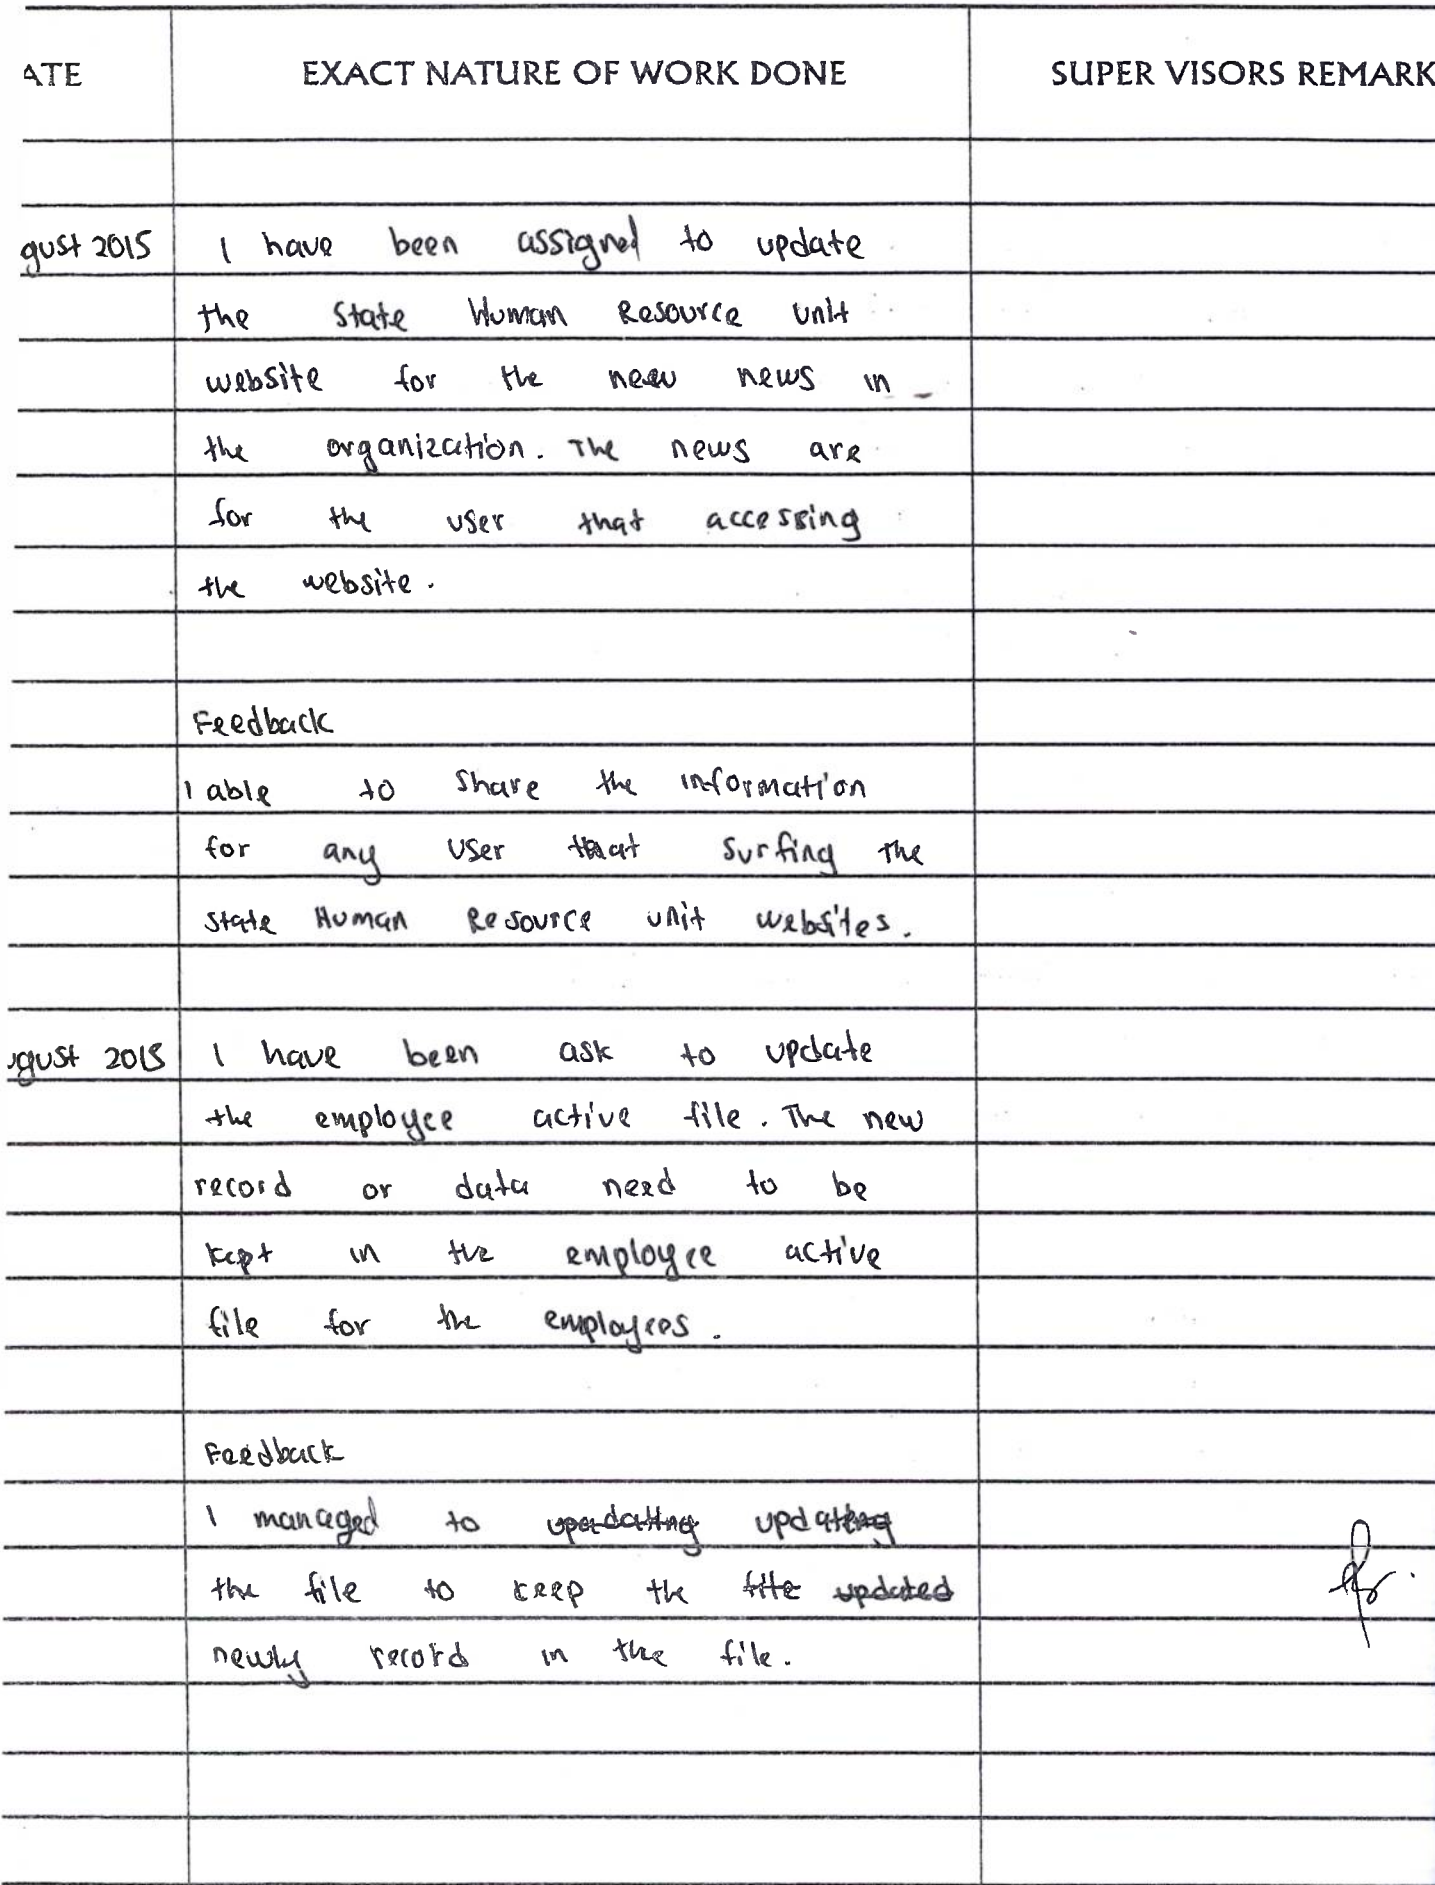 ATE EXACT NATURE OF WORK DONE SUPER VISORS REMARK
gust 2015 I have been assigned to update
the State Human Resource unit
website for the new news in
the organization. The news are
for the user that accessing
the website.
Feedback
I able to share the information
for any user that surfing the
State Human Resource unit websites.
ugust 2015 I have been ask to update
the employee active file. The new
record or data need to be
kept in the employee active
file for the employees.
Feedback
I managed to updating updating
the file to keep the file updated
newly record in the file.